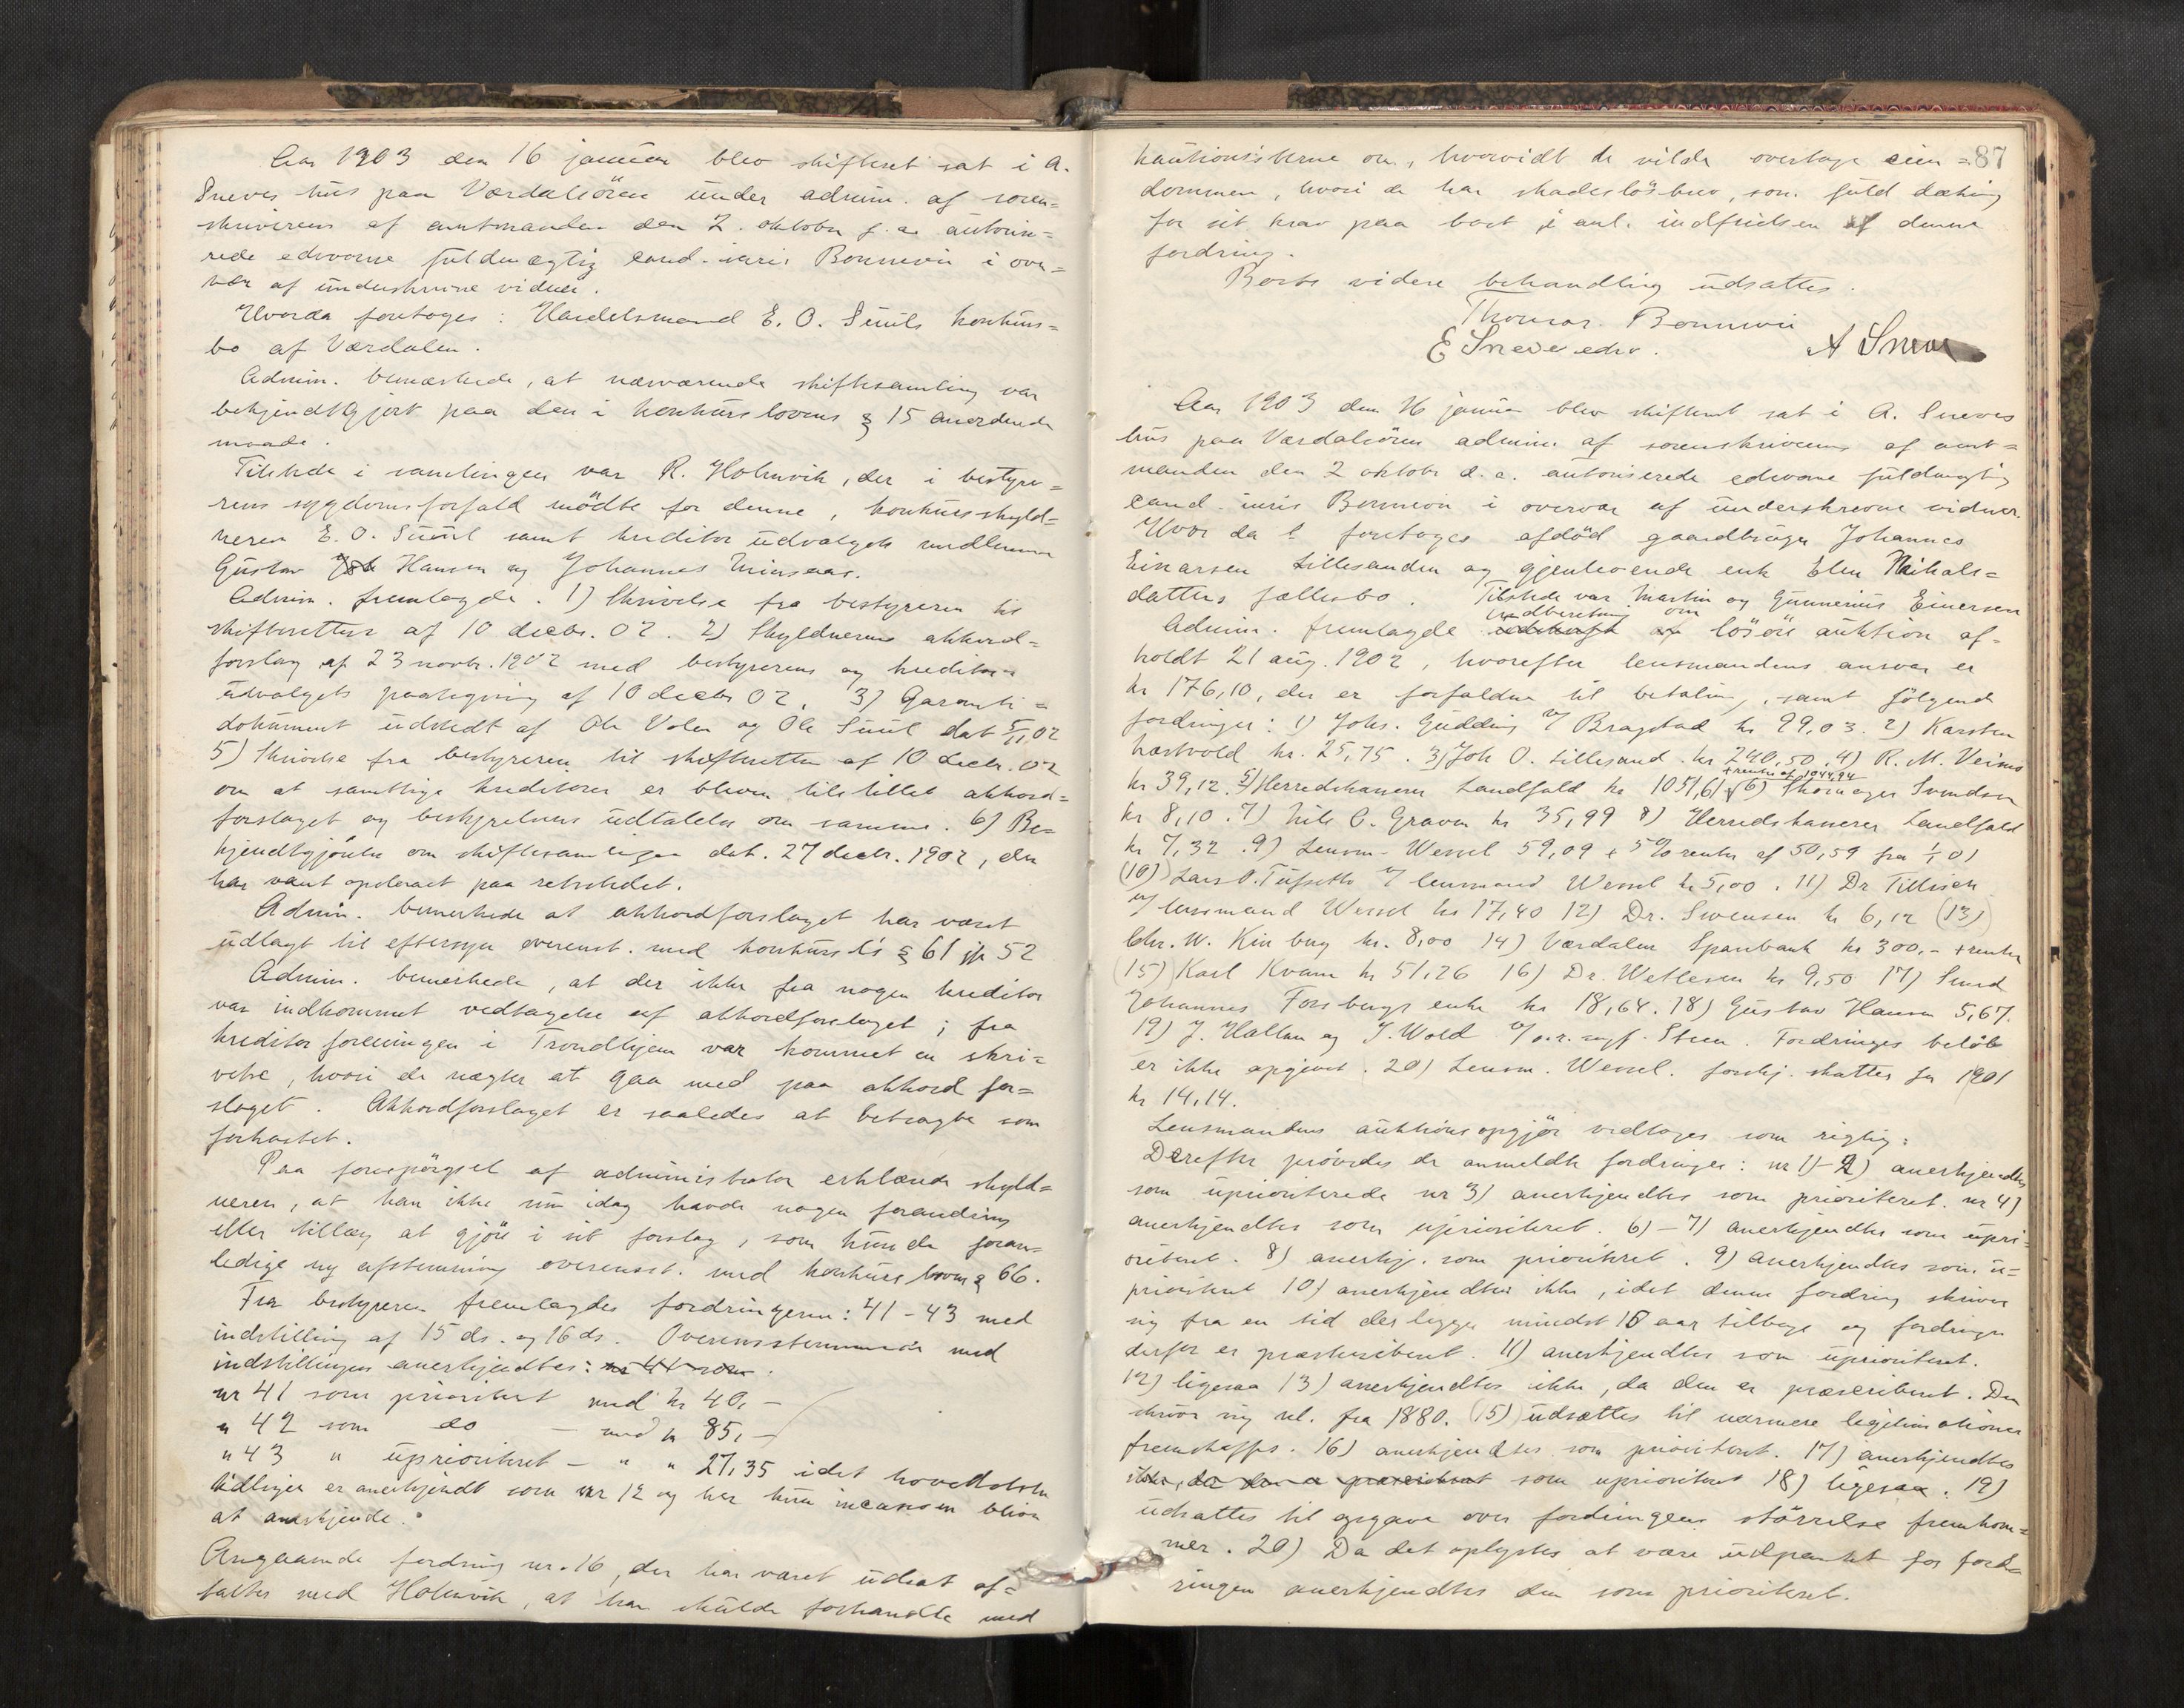 Aar 1903 den 16 januar blev skifteret sat i A.
Sneves hus paa Værdalsören under admin. af soren=
skriverens af amtmanden den 2. oktober f. a. autori=
rede edsvorne fuldmægtig cand. juris Bonnevie i over=
vær af underskrevne vidner.
Hvorda foretoges: Handelsmand E. O. Suuls konkurs=
bo af Værdalen.
Admin. bemærkede, at nærværende skiftesamling var
bekjendtgjort paa den i konkurslovens § 15 anordnede
maade.
Tilstede i samlingen var R. Holmvik, der i bestyre=
rens sygdomsforfald mödte for denne, konkursskyld=
neren E. O. Suul samt kreditorudvalgets medlemmer
Gustav Hansen og Johannes Minsaas.
Admin. fremlagde. 1) Skrivelse fra bestyreren til
skifteretten af 10 decbr. 02. 2) Skyldnerens akkord=
forslag af 23 novbr. 1902 med bestyrerens og kreditor=
udvalgets paategning af 10 decbr 02. 3) Garanti=
dokument udstedt af Ole Volen og Ole Suul dat 5/11 02
5) Skrivelse fra bestyreren til skifteretten af 10 decbr. 02
om at samtlige kreditorer er bleven tilstillet akkord=
forslaget og bestyrelsens udtalelse om samme. 6) Be=
kjendtgjörelse om skiftesamlingen dat. 27 decbr. 1902, der
har været opslaaet paa retsstedet.
Admin. bemerkede at akkordforslaget har været
udlagt til eftersyn overenst. med konkursl's § 61 jfr 52
Admin. bemerkede, at der ikke fra nogen kreditor
var indkommet vedtagelse af akkordforslaget; fra
kreditorforeningen i Trondhjem var kommet en skri=
velse, hvori de nægter at gaa med paa akkordfor=
slaget. Akkordforslaget er saaledes at betragte som
forkastet.
Paa forespörgsel af administrator erklærede skyld=
neren, at han ikke nu idag havde nogen forandring
eller tillæg at gjöre i sit forslag, som kunde foran=
ledige ny afstemning overensst. med konkurslovens § 66.
Fra bestyreren fremlagdes fordringerne: 41 - 43 med
indstilling af 15 ds. og 16 ds. Overensstemmende med
indstillingen anerkjendtes: nr 41 som
nr 41 som prioritert med kr 40, -
" 42 som do - med kr 85, -
" 43 " uprioriteret - " " 27,35 idet hovedstolen
tidligere er anerkjendt som nr 12 og her kun incasso'en bliver
at anerkjende.
Angaaende fordring nr. 16, der har været udsat af=
taltes med Holmvik, at han skulde forhandle med
87
kautionisterne om, hvorvidt de vilde overtage eien=
dommen, hvori de har skadeslösbrev, som fuld dækning
for sit krav paa boet i anl. indfrielsen af denne
fordring.
Boets videre behandling udsattes.
Thomas. Bonnevie
E Sneve edsv. A Sneve
Aar 1903 den 16 januar blev skifteret sat i A. Sneves
hus paa Værdalsören admin. af sorenskriverens af amt=
manden den 2 oktobr d. a. autoriserede edsvorne fuldmægtig
cand. juris Bonnevie i overvær af underskrevne vidner.
Hvor da foretoges afdöd gaardbruger Johannes
Einarsen Lillesanden og gjenlevende enke Elen Mikals=
datters fællesbo. Tilstede var Martin og Gunnerius Einersen
Indberetning om
Admin. fremlagde udskrift af lösöre auktion af=
holdt 21 aug. 1902, hvorefter lensmandens ansvar er
kr 176,10, der er forfalden til betaling, samt fölgende
fordringer: 1) Johs. Gudding v/ Bragstad kr 99,03. 2) Karsten
Hæstvold kr. 25,75. 3) Joh O. Lillesand. kr 240,50. 4) R. M. Veimo
+ renter af 1044,94
kr 39,12. 5) Herredskasserer Landfald kr 1051,61 6) Skomager Svendsen
kr 8,10. 7) Nils O. Gravm kr 35,99 8) Herredskasserer Landfald
kr 7,32. 9) Lensm. Wessel 59,09 + 5% renter af 50,59 fra 1/1 01
(10) Lars O. Tufseth v/ lensmand Wessel kr 5,00. 11) Dr Tillisch
v/ lensmand Wessel kr 17,40 12) Dr. Svensen kr 6,12 (13)
Chr. W. Kinberg kr. 8,00 14) Værdalens Sparebank kr 300,- + renter
(15) Karl Kvam kr 51,26 16) Dr. Wetlesen kr 9,50 17) Smed
Johannes Forsbergs enke kr 18,64. 18) Gustav Hansen 5,67.
19) J. Hallan og J. Wold v/ o.r. sagf. Steen. Fordringes belöb
er ikke opgivet. 20) Lensm. Wessel. forskj. skatter for 1901
kr 14,14.
Lensmandens auktionsopgjör vedtoges som rigtig.
Derefter prövedes de anmeldte fordringer: nr 1) - 2) anerkjendtes
som uprioriterede nr 3) anerkjendtes som prioriteret. nr 4)
anerkjendtes som uprioriteret. 6) - 7) anerkjendtes som upri=
oriteret. 8) anerkj. som prioriteret. 9) anerkjendtes som u=
prioriteret 10) anerkjendtes ikke, idet denne fordring skriver
sig fra en tid der ligger mindst 18 aar tilbage og fordringen
derfor er præskriberet. 11) anerkjendtes som uprioriteret.
12) ligesaa 13) anerkjendtes ikke, da den er præscriberet. Den
skriver sig nl. fra 1880. (15) udsættes til nærmere legitimationer
fremskaffes. 16) anerkjendtes som prioriteret. 17) anerkjendtes
ikke, da den er præscriberet som uprioriteret 18) ligesaa. 19)
udsattes til opgave over fordringens störrelse fremkom=
mer. 20) Da det oplystes at være udpantet for ford=
ringen anerkjendtes den som prioriteret.